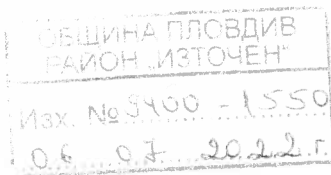 ОБЩИНА ПЛОВДИВ
РАЙОН „ИЗТОЧЕН“
Изх. № 9400 - 1550
06 07 2022 г.